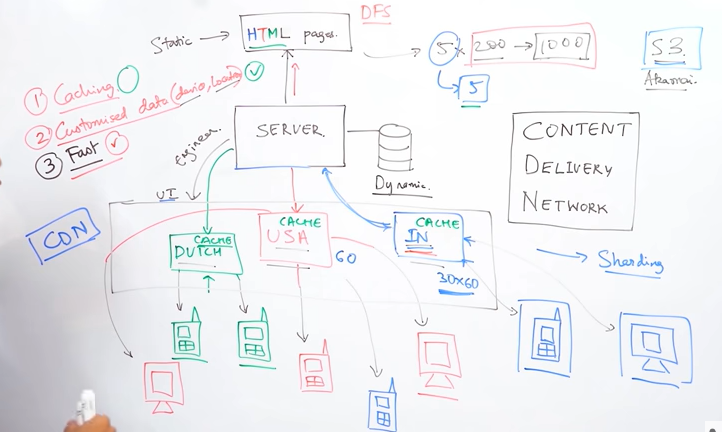 DFS
Static → HTML pages.
5 × 200 → 1000
5
S3
Akamai
① Caching
② Customised data (device, location)
③ Fast
Engineer
SERVER
Dynamic.
CONTENT
DELIVERY
NETWORK
UI
CDN
CACHE
DUTCH
CACHE
USA
60
CACHE
IN
30×60
Sharding